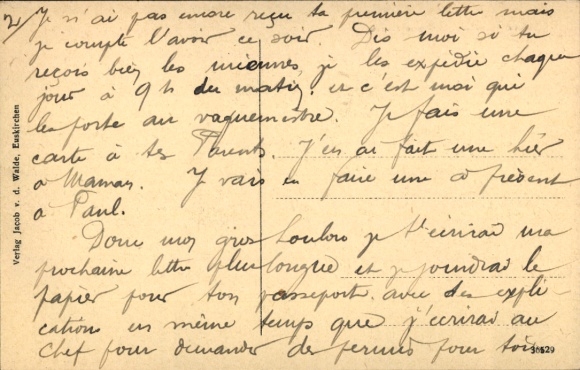 2/ Je n'ai pas encore reçu ta première lettre mais
je compte l'avoir ce soir. Dis moi si tu
reçois bien les miennes, je les expédie chaque
jour à 9 h du matin, et c'est moi qui
les porte au vaguemestre. Je fais une
carte à tes Parents. J'en ai fait une hier
à Maman. Je vais en faire une à présent
à Paul.
Donc mon gros Loulou je t'écrirai ma
prochaine lettre plus longue et je joindrai le
papier pour ton passeporte avec des expli-
cations en même temps que j'écrirai au
Chef pour demander des permis pour toi
Verlag Jacob v. d. Walde, Euskirchen
36529